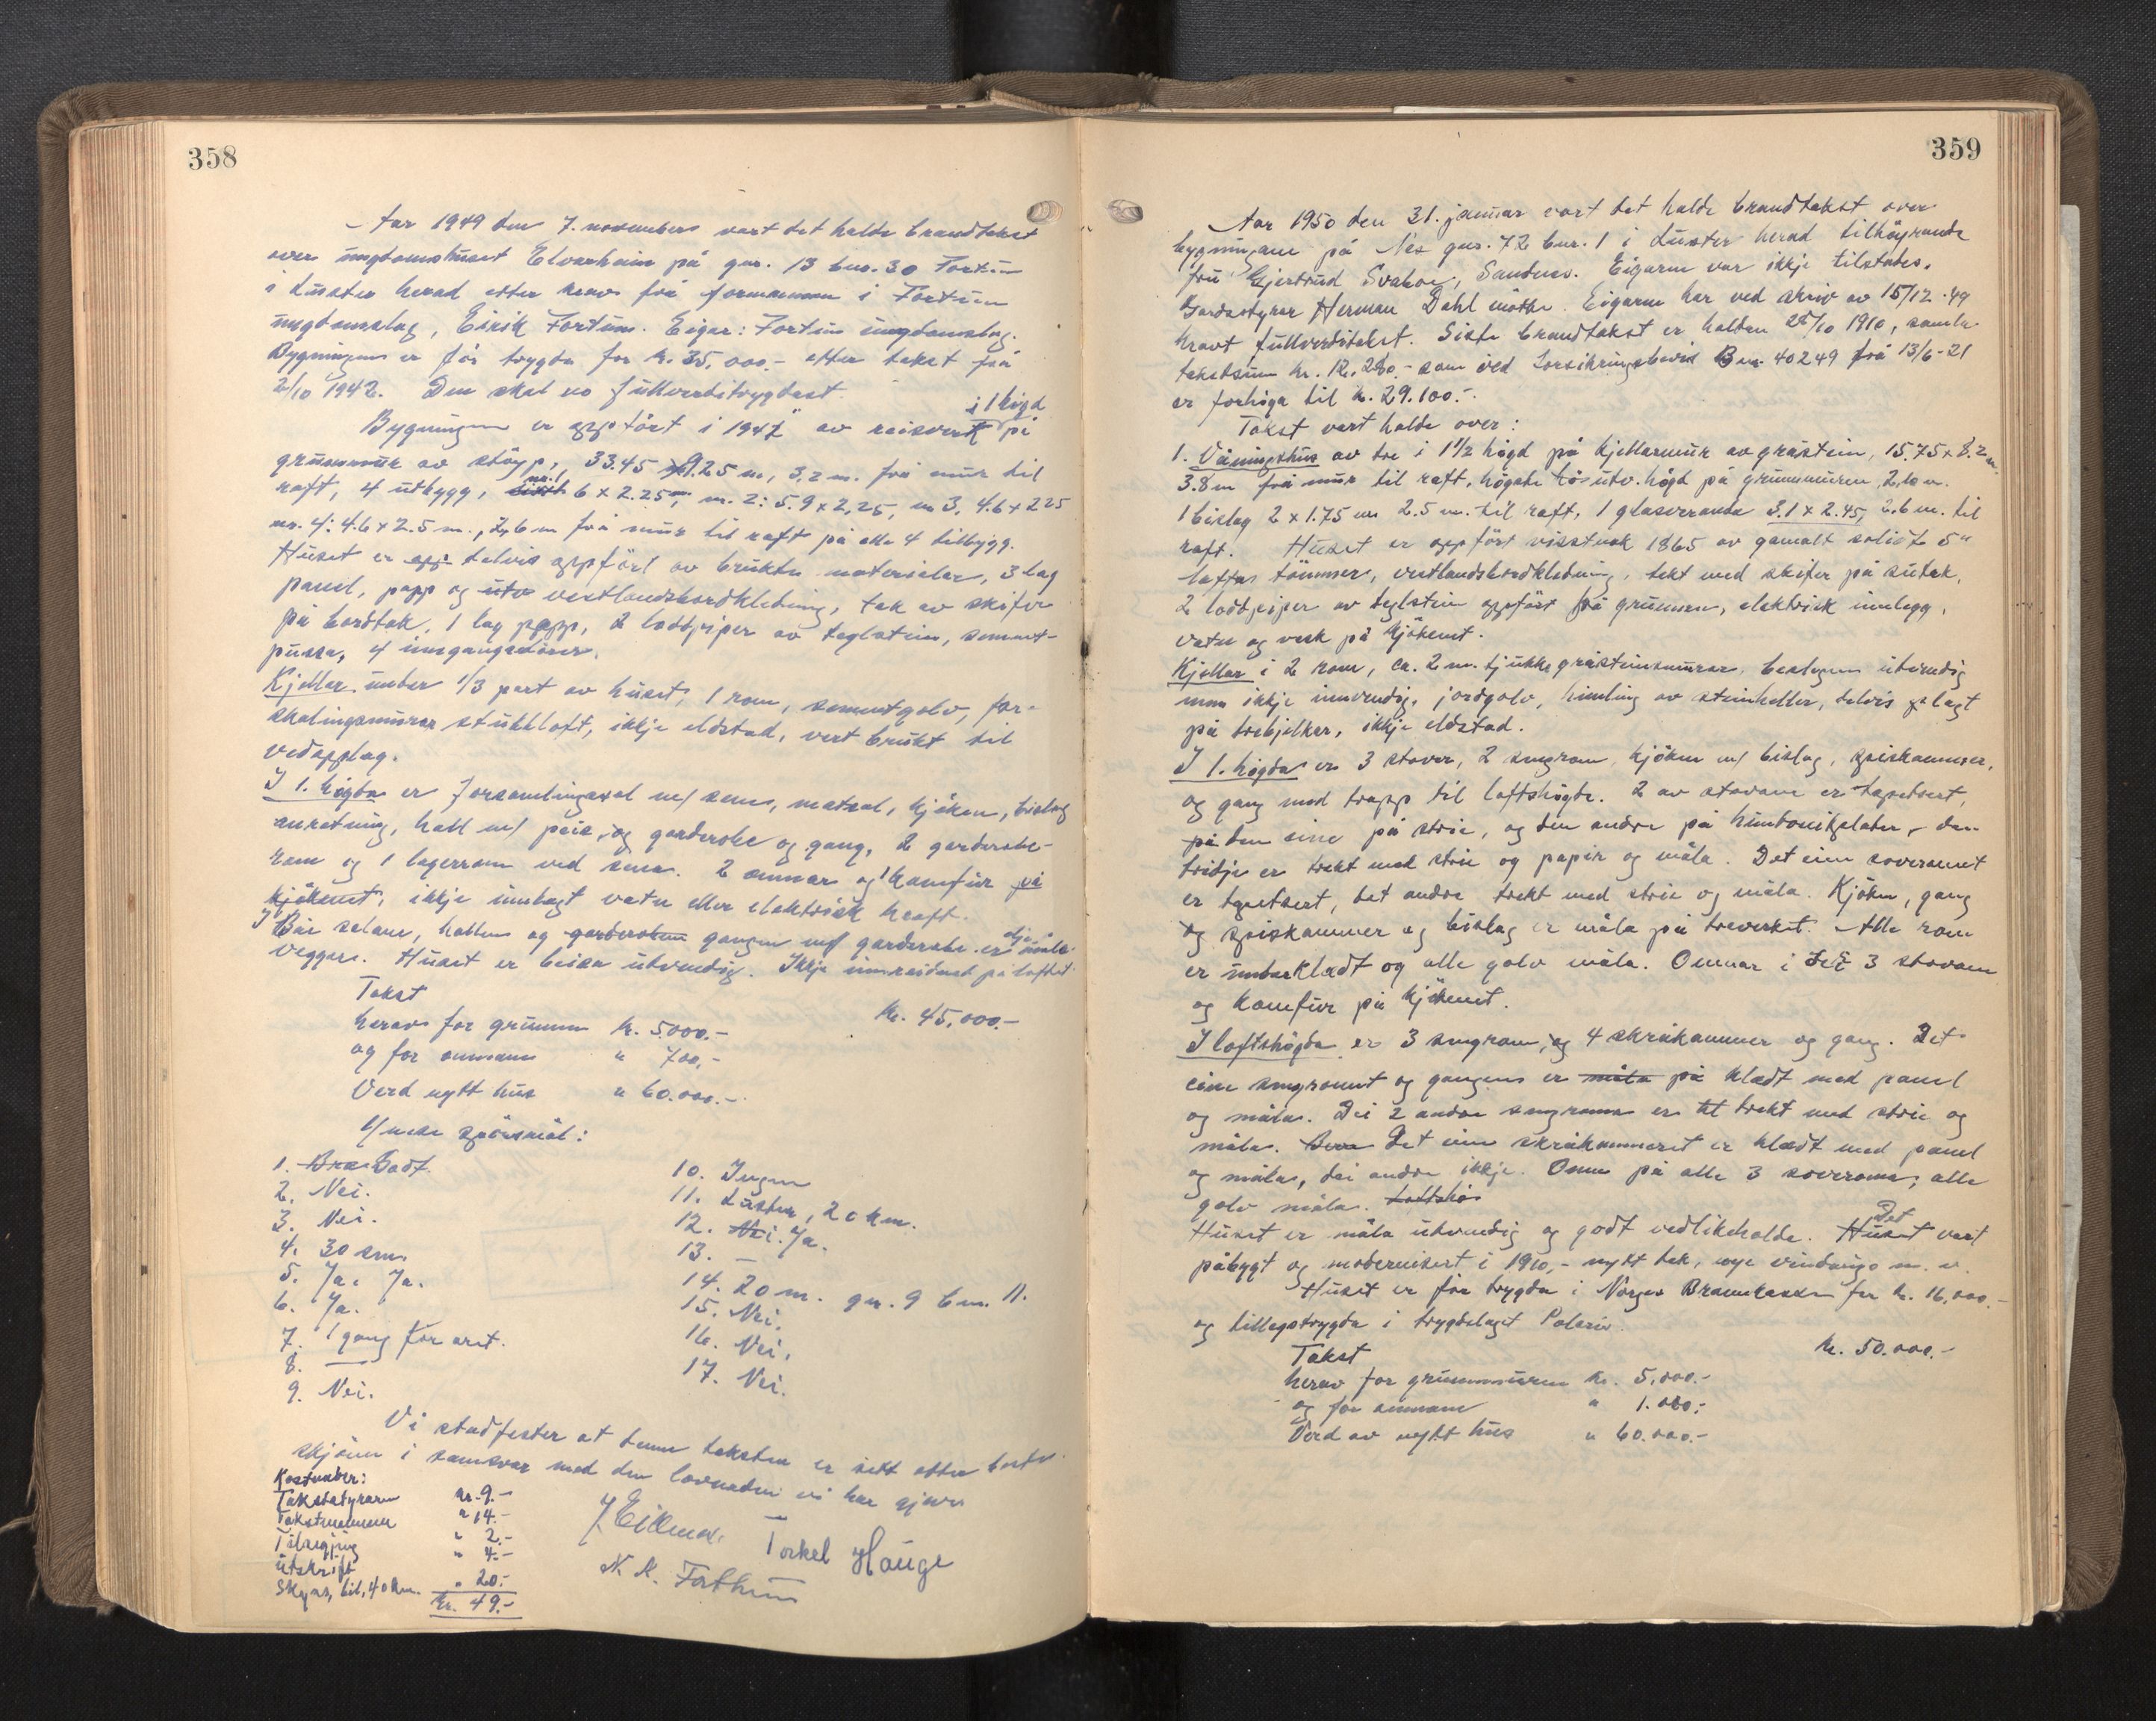 358
Aar 1949 den 7. november vart det halde brandtakst
over ungdomshuset Elvarheim på gnr. 13 bnr. 30 Fortun
i Luster herad etter krav frå formannen i Fortun
ungdomslag, Eirik Fortun. Eigar: Fortun ungdomslag.
Bygningen er før trygda for kr. 35,000.- etter takst frå
2/10 1942. Den skal no fullverditrygdast.
i 1 høgd
Bygningen er oppført i 1947 av reisverk på
grunnmur av støyp, 33.45 x 9.25 m, 3,2 m. frå mur til
raft, 4 utbygg, nr. 1 6 x 2.25 m, nr. 2: 5.9 x 2,25, nr 3, 4.6 x 225
nr. 4: 4.6 x 2.5 m., 2,6 m frå mur til raft på alle 4 tilbygg.
Huset er opp delvis oppført av brukte materialer, 3 lag
panel, papp og utv vestlandsbordkledning, tak av skifer
på bordtak, 1 lag papp, 2 loddpiper av teglstein, sement-
pussa, 4 inngangsdører.
Kjellar under 1/3 part av huset, 1 rom, sementgolv, for-
skalingsmurar stubbloft, ikkje eldstad, vert brukt til
vedopplag.
I 1. høgda er forsamlingssal m/ scene, matsal, kjøken, bislag
anretning, hall m/ peis, og garderobe og gang, 2 garderobe-
rom og 1 lagerrom ved scena. 2 omnar og 1 komfur på
kjøkenet, ikkje innlagt vatn eller elektrisk kraft.
I Båe salane, hallen og garderoben gangen m/ garderobe er måla
veggar. Huset er beisa utvendig. Ikkje innreidned på loftet.
Takst
kr. 45,000.-
herav for grunnen kr. 5000.-
og for omnane " 700,-
Verd nytt hus " 60.000.-
Ymse spørsmål:
1. Bra Godt.
2. Nei.
3. Nei.
4. 30 cm
5. Ja. Ja.
6. Ja.
7. 1 gang for året.
8. —
9. Nei.
10. Ingen
11. Luster, 20 km.
12. Nei. Ja.
13. —
14. 20 m. gnr. 9 bnr. 11.
15. Nei.
16. Nei.
17. Nei.
Vi stadfester at denne taksten er sett etter beste
skjønn i samsvar med den lovnaden vi har gjeve
Kostnader:
Takststyraren kr. 9.-
Takstmennene " 14.-
Tilsegjing " 2.-
utskrift " 4.-
Skyss, bil, 40 km. " 20.-
kr. 49.-
Torkel Hauge
N. K. Forthun
359
Aar 1950 den 31. januar vart det halde brandtakst over
bygningane på Nes gnr. 72 bnr. 1 i Luster herad tilhøyrande
fru Gjertrud Svahoe, Sandnes. Eigaren var ikkje tilstades.
Gardsstyrar Herman Dahl møtte. Eigaren har ved skriv av 15/12-49
kravt fullverditakst. Siste brandtakst er halden 28/10 1910, samla
takstsum kr. 12.280.- som ved Forsikringsbevis B nr. 40249 frå 13/6-21
er forhøga til kr. 29.100.-.
Takst vart halde over:
1. Våningshus av tre i 1½ høgd på kjellarmur av gråstein, 15.75 x 8.2 m
3.8 m frå mur til raft, høgste utv. høgd på grunnmuren 2,10 m.
1 bislag 2 x 1.75 m 2.5 m. til raft, 1 glasveranda 3.1 x 2.45, 2.6 m. til
raft. Huset er oppført visstnok 1865 av gamalt solidt 5"
lafta tømmer, vestlandsbordkledning, tekt med skifer på sutak,
2 loddpiper av teglstein oppført frå grunnen, elektrisk innlegg,
vatn og vask på kjøkenet.
Kjellar i 2 rom, ca. 2 m. tjukke gråsteinsmurar, beslegne utvendig
men ikkje innvendig, jordgolv, himling av steinheller, delvis lagt
på trebjelkar, ikkje eldstad.
I 1. høgda er 3 stover, 2 sengrom, kjøken m/ bislag, spiskammer,
og gang med trapp til loftshøgda. 2 av stovane er tapetsert,
på den eine på strie, og den andre på huntonitplater, den
tridje er trekt med strie og papir og måla. Det eine soverommet
er tapetsert, det andre trekt med strie og måla. Kjøken, gang
og spiskammer og bislag er måla på treverket. Alle rom
er underkledt og alle golv måla. Omnar i 3 stovom
og komfur på kjøkenet.
I loftshøgda er 3 sengrom, og 4 skråkammer og gang. Det
eine sengrommet og gangen er måla på kledt med panel
og måla. Dei 2 andre sengromma er trekt med strie og
måla. Det eine skråkammeret er kledt med panel
og måla, dei andre ikkje. Omn på alle 3 soveromma, alle
golv måla. Loftshø
Huset er måla utvendig og godt vedlikehalde. Huset Det vart
påbygt og modernisert i 1910, - nytt tak, nye vindaugo m. v.
Huset er før trygda i Norges Brannkasse for kr. 16,000.-
og tilleggstrygda i trygdelaget Polaris.
Takst
kr. 50.000.-
herav for grunnmuren kr. 5.000.-
og for omnane " 1.000.-
Verd av nytt hus " 60.000.-